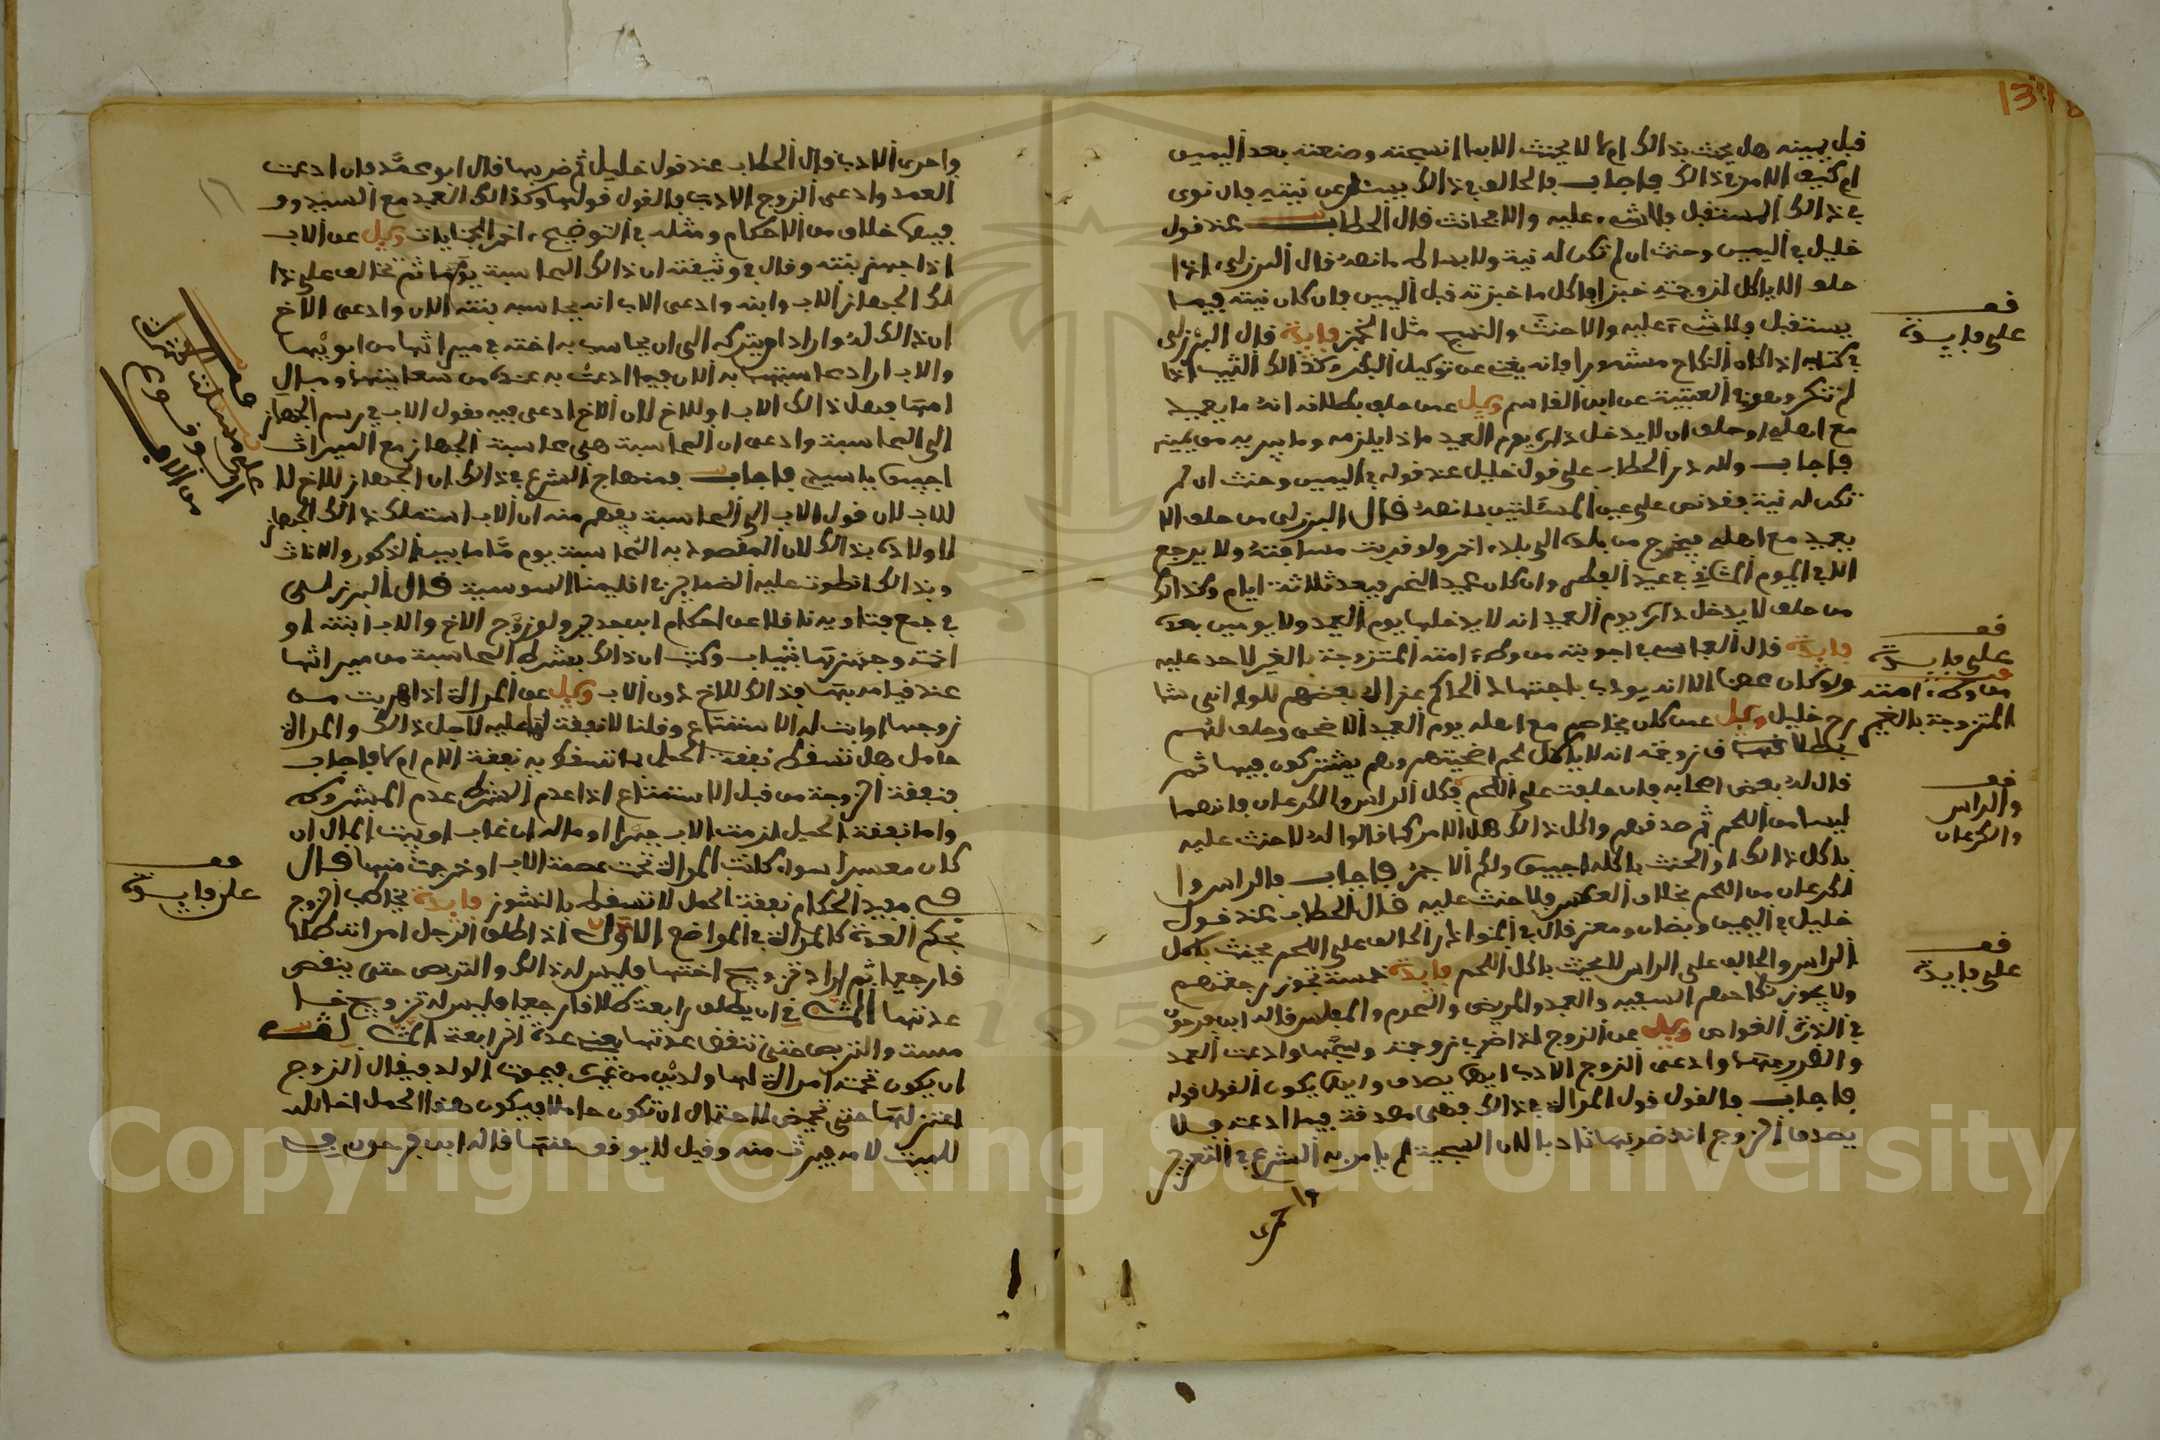 قبل يمينه هل يحنث بذالك ام لا يحنث الا بما نسجته وصنعته بعد اليمين
ام كيف الامر في ذالك فاجاب فالحالف في ذالك يسئل عن نيته فان نوى
في ذالك المستقبل فلا شيء عليه والا فحانث قال الحطاب عند قول
خليل في اليمين وحنث ان لم تكن له نية ولا بساط ما نصه قال البرزلي اذا
حلف الا ياكل لزوجته خبزا فاكل ما خبزته قبل اليمين فان كان نيته فيما
يستقبل فلا شيء عليه والا حنث والنسج مثل الخبز فايدة قال البرزلي
في كتابه اذا كان النكاح مشهورا فانه يغني عن توكيل البكر وكذالك الثيب اذا
لم تنكر وهو في العتبية عن ابن القاسم وسئل عمن حلف بطلاقه انه ما يعيد
مع اهله او حلف ان لا يدخل داره يوم العيد ماذا يلزمه وما يبر به من يمينه
فاجاب ولله در الحطاب على قول خليل عند قوله في اليمين وحنث ان لم
تكن له نية فقد نص على عين المسئلتين ما نصه قال البرزلي من حلف الا
يعيد مع اهله فيخرج من بلده الى بلد اخر ولو قربت مسافته ولا يرجع
الا في اليوم الثاني في عيد الفطر وان كان عيد النحر فبعد ثلاثة ايام وكذالك
من حلف لا يدخل داره يوم العيد انه لا يدخلها يوم العيد ولا يومين بعده
فايدة قال العباسي في اجوبته من وطىء امته المتزوجة بالغير لا حد عليه
ولو كان محصنا الا انه يودب باجتهاد الحاكم عزاه بعضهم للوانشي شا
رح خليل وسئل عمن كان يخاصم مع اهله يوم العيد الاضحى وحلف لهم
بطلاق زوجته انه لا ياكل لحم اضحيتهم وهم يشتركون فيها ثم
قال له بعض اصحابه فان حلفت على اللحم فكل الراس والكرعان فانهما
ليسا من اللحم ثم صدقهم واكل ذالك هل الامر كما قالوا له لا حنث عليه
باكل ذالك او الحنث باكله اجيبوا ولكم الاجر فاجاب فالراس وا
لكرعان من اللحم بخلاف العكس فلا حنث عليه قال الحطاب عند قول
خليل في اليمين وبضان ومعز قال في النوادر الحالف على اللحم يحنث باكل
الراس والحالف على الراس لا يحنث باكل اللحم فايدة خمسة تجوز رجعتهم
ولا يجوز نكاحهم السفيه والعبد والمريض والمحرم والمفلس قاله ابن فرحون
في الدرة الغواص وسئل عن الزوج اذا ضرب زوجته وادعت العمد
وادعى الزوج الادب ايهما يصدق وايهما يكون القول قوله
فاجاب فالقول قول المراة في ذالك فهي مصدقة فيما ادعته فلا
يصدق الزوج انه ضربها تادبا لان السجية لم يامر به الشرع في التعرج
على فايدة
على فايدة
من وطىء امته
المتزوجة بالغير
والراس
والكرعان
على فايدة
واحرى الادب قال الحطاب عند قول خليل ثم ضربها قال ابو محمد فان ادعت
العمد وادعى الزوج الادب فالقول قولها وكذالك العبد مع السيد وو
فيهما خلاف من الاحكام ومثله في التوضيح اخر الجنايات وسئل عن الاب
اذا جهز بنته وقال في وثيقته ان ذالك المحاسبة يوما ثم تخالف على ذا
لك الجهاز الاب وابنه وادعى الاب انه يحاسب بنته الان وادعى الاخ
ان ذالك له واراد ان يتركه الى ان يحاسب به اخته في ميراثها من ابويها
والاب اراد محاسبتها به الان فيما ادعت به عنده من سعايتها ومال
امها فهل ذالك للاب او للاخ لان الاخ ادعى فيه بقول الاب في رسم الجهاز
الى المحاسبة وادعى ان المحاسبة هي محاسبة الجهاز مع الميراث
اجيبوا يا سيدي فاجاب فمنهاج الشرع في ذالك ان الجهاز للاخ لا
للاب لان قول الاب الى المحاسبة يفهم منه ان الاب استملك ذالك الجهاز
لاولاده بذالك لان المقصود به المحاسبة يوم ما ما بين الذكور والاناث
وبذالك انطوت عليه الضماير في اقليمنا السوسية قال البرزلي
في جمع فتاويه ناقلا عن احكام ابن جدير ولو زوج الاخ والاب ابنته او
اخته وجهزها بثياب وكتب ان ذالك بشرط المحاسبة من ميراثها
عند قيامه بها فذالك للاخ دون الاب وسئل عن المراة اذا هربت من
زوجها او ابت له الاستمتاع وقلنا لا نفقة لها عليه لاجل ذالك والمراة
حامل هل تسقط نفقة الحمل بما تسقط به نفقة الام ام لا فاجاب
فنفقة الزوجة من قبل الاستمتاع اذا عدم الشرط عدم المشروط
واما نفقة الحمل لزمت الاب جبرا او ماله ان غاب او بيت المال ان
كان معسرا سواء كانت المراة تحت عصمة الاب او خرجت منها قال
في مفيد الحكام نفقة الحمل لا تسقط بالنشوز فايدة يخاطب الزوج
بحكم العدة كالمراة في المواضع الاول اذا طلق الرجل امراته طلا
قا رجعيا ثم اراد تزويج اختها فليس له ذالك والتربص حتى ينقض
عدتها الثاني ان يطلق رابعة طلاقا رجعيا فليس له تزويج خا
مسة والتربص حتى تنقض عدتها يعني عدة الرابعة الثالث
ان يكون تحته امراة لها ولد من غيره فيموت الولد فيقال الزوج
اعتزلها حتى تحيض لاحتمال ان تكون حاملا فيكون هذا الحمل اخا لك
للميت لامه فيرث منه وقيل لا يوقف عنها قاله ابن فرحون في
على فايدة